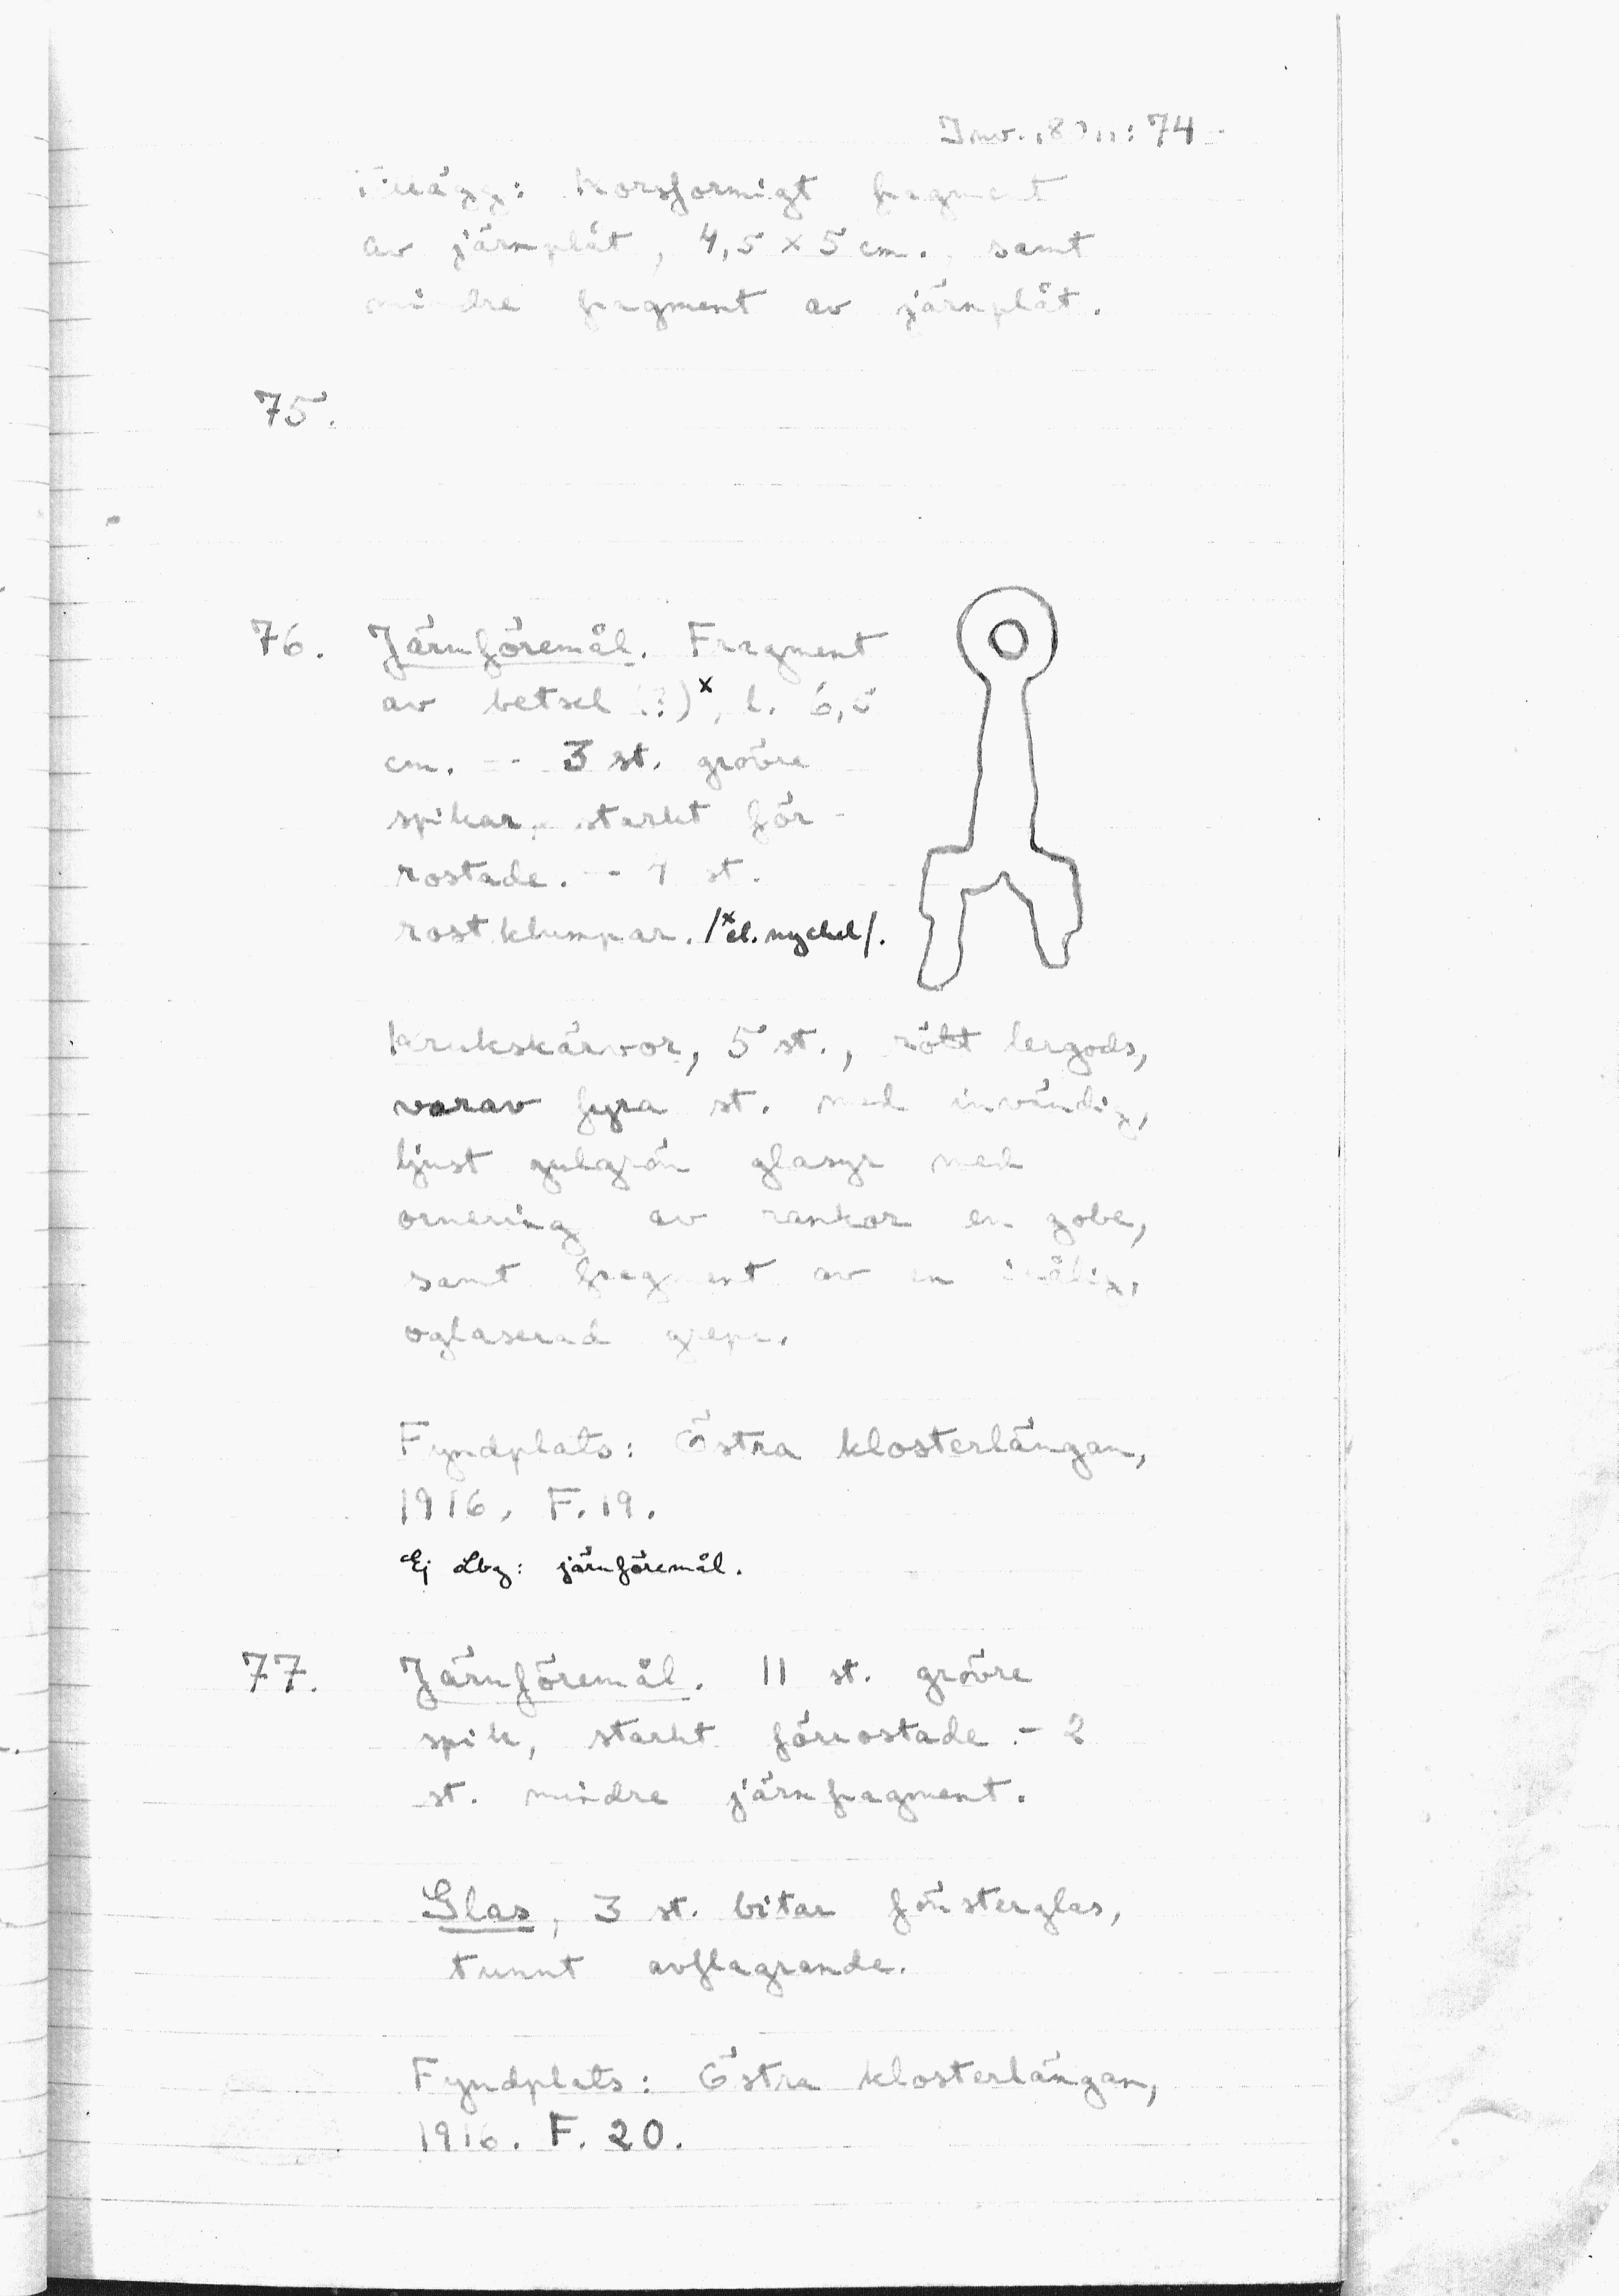 Inv. :74
Tillägg: korsformigt fragment
av järnplåt, 4,5 x 5 cm., samt
mindre fragment av järnplåt.
75.
76. Järnföremål. Fragment
av betsel (?)x, l. 6,5
cm. - 3 st. grövre
spikar, starkt för-
rostade. - 1 st.
rostklumpar. /x el. nyckel/.
Krukskärvor, 5 st., rött lergods,
varav fyra st. med invändig,
ljust gulgrön glasyr med
ornering av rankor en gobe,
samt fragment av en ihålig,
oglaserad grepe.
Fyndplats: Östra klosterlängan,
1916. F. 19.
Ej Lbg: järnföremål.
77. Järnföremål. 11 st. grövre
spik, starkt förrostade. - 2
st. mindre järnfragment.
Glas, 3 st. bitar fönsterglas,
tunnt avflagrande.
Fyndplats: Östra klosterlängan,
1916. F. 20.